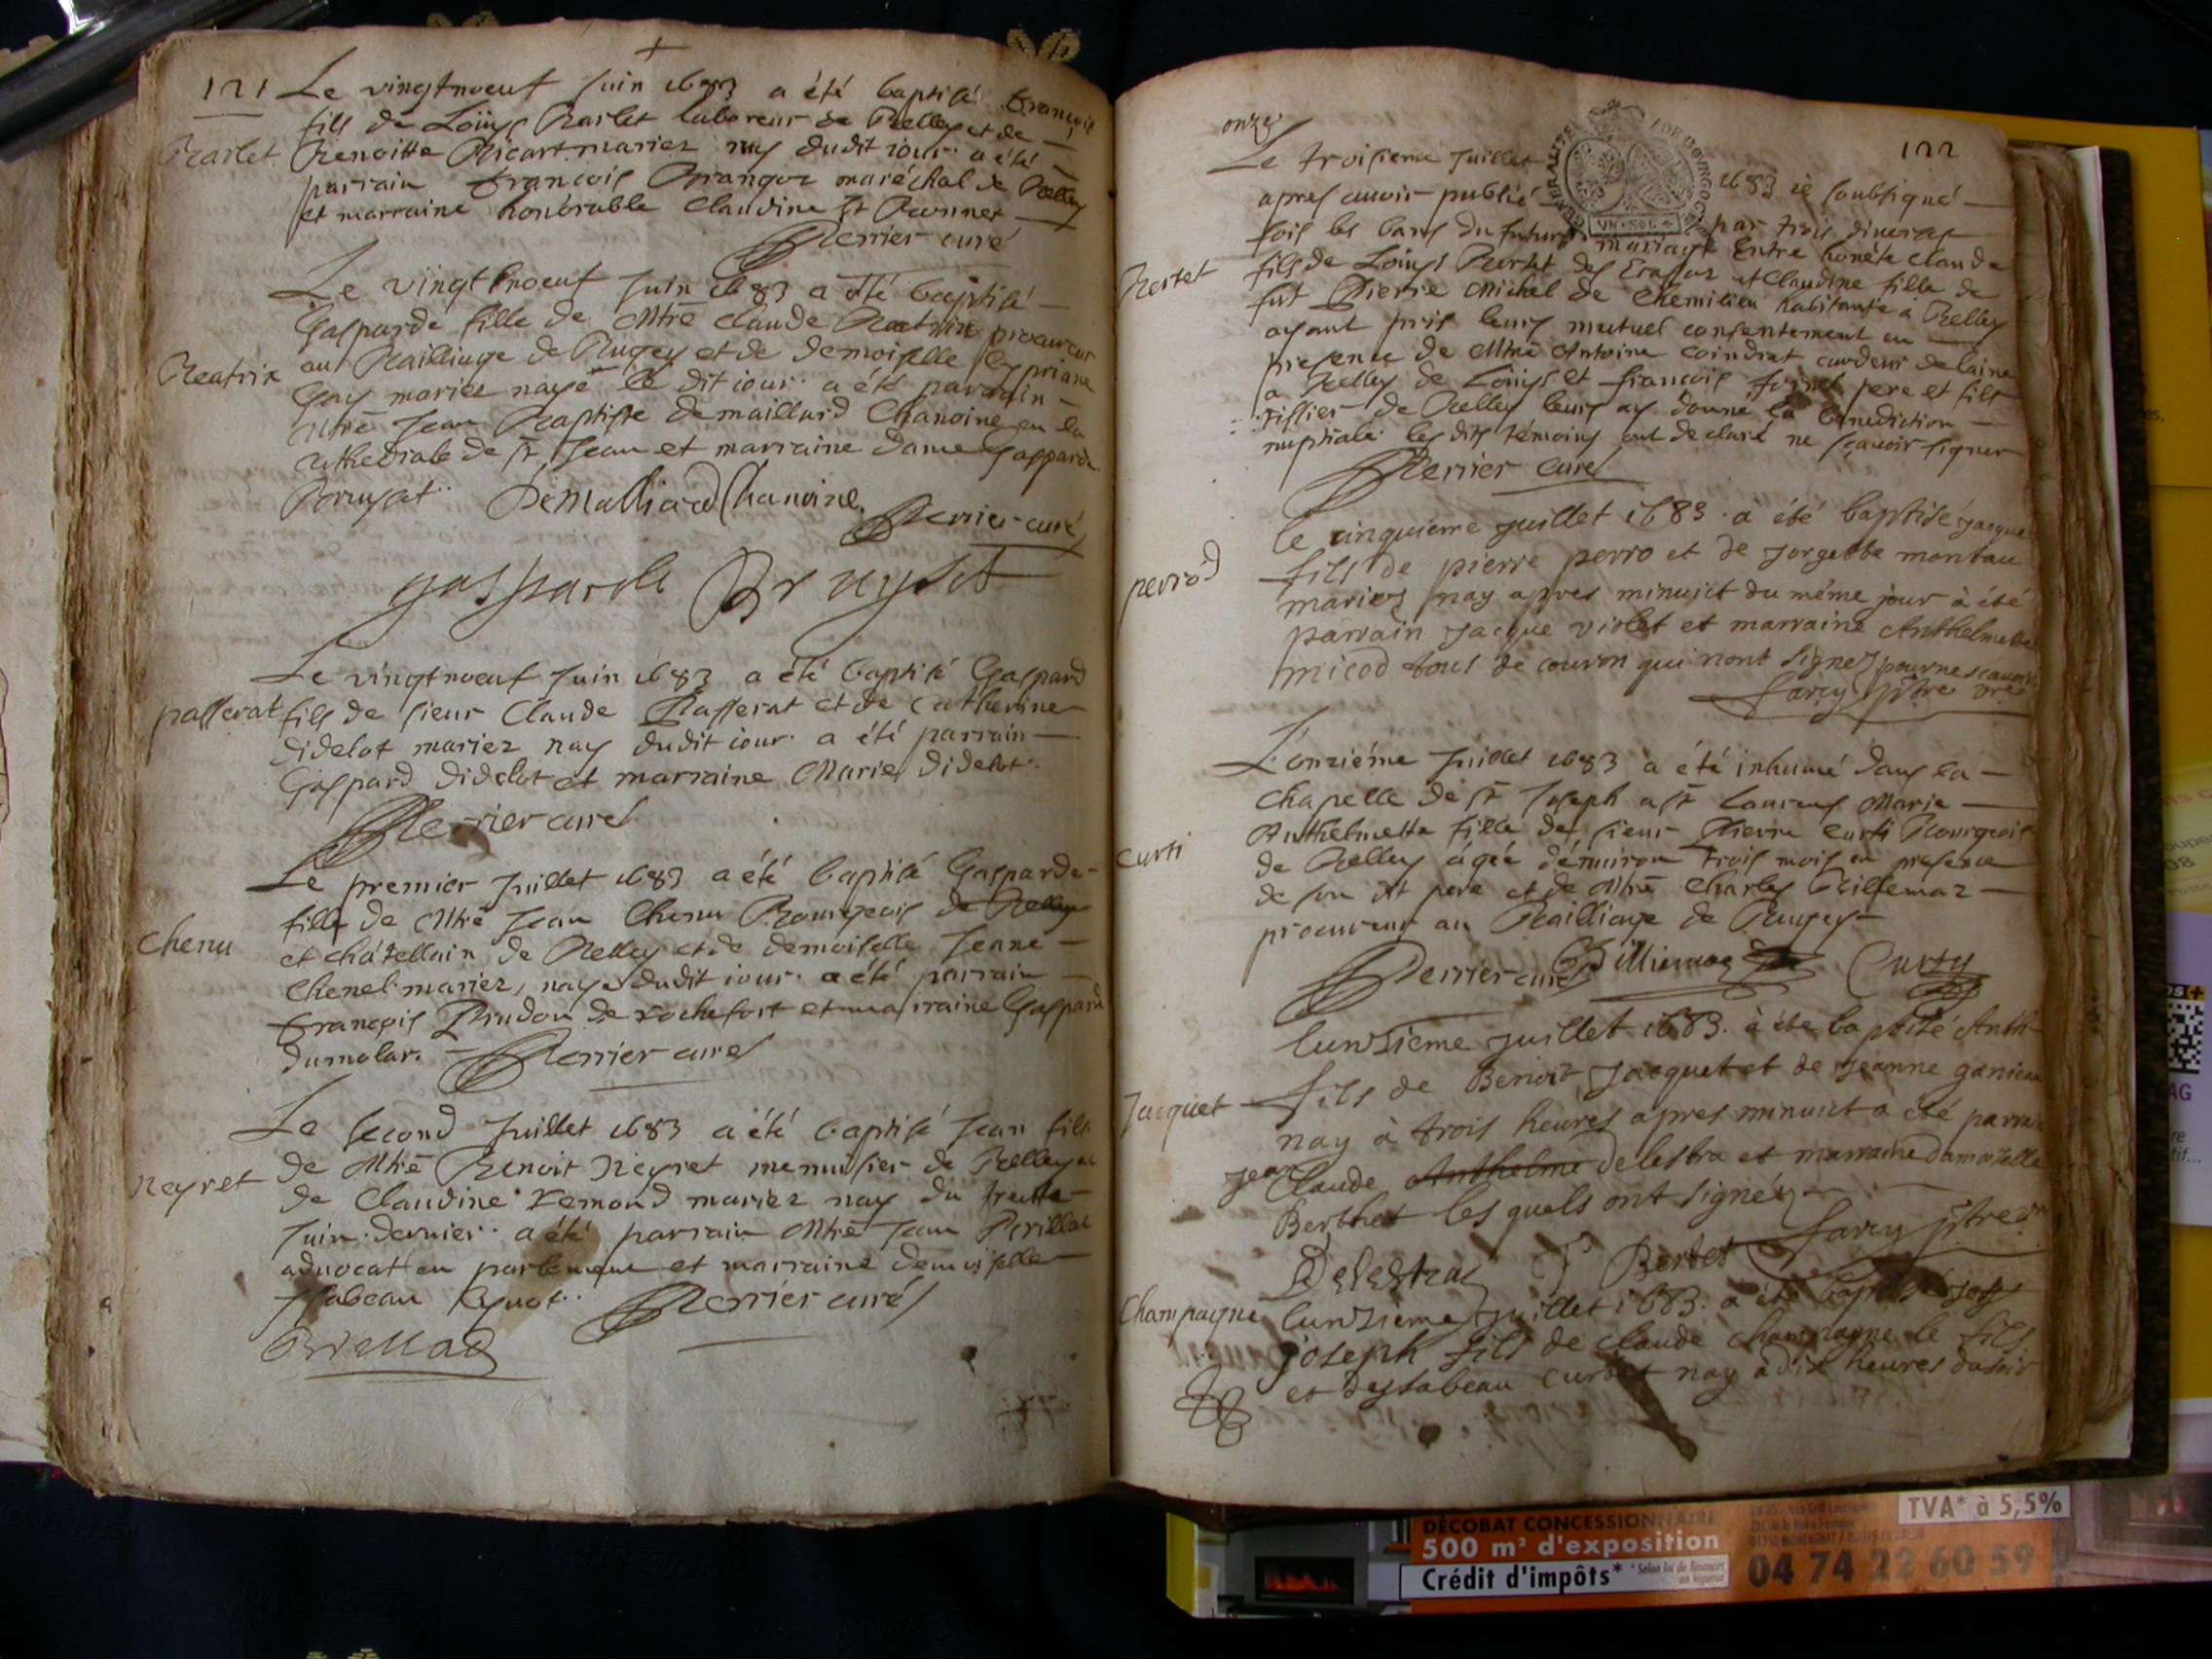 121
Le vingtnoeuf Juin 1683 a été baptisé françois
fils de Loüys Barlet laboreur de Belley et de
Barlet
Benoitte Bicart mariez nay dudit iour a été
parrain françois maréchal de Belley
et marraine honorable Claudine
Perrier curé
Le vingt noeuf Juin 1683 a été baptisé
Gasparde fille de Mtre Claude Beatrix procureur
Beatrix
aut Bailliage de Bugey et de demoiselle Cypriane
Guy mariez naye le dit iour a été parrain
Mtre Jean Baptiste Demaillard Chanoine en la
cathedrale de St Jean et marraine dame Gasparde
Bruyset Demalliard Chanoine
Perrier curé
gasparde Bruyset
Le vingtnoeuf Juin 1683 a été baptisé Gaspard
passerat
fils de sieur Claude Passerat et de Catherine
didelot mariez nay dudit iour a été parrain
Gaspard didelot et marraine Marie didelot
Perrier curé
Le premier Juillet 1683 a été baptisé Gasparde
fille de Mtre Jean Chenu Bourgeois de Belley
Chenu
et châtellain de Belley et de demoiselle Jeane
Chenel mariez, naye dudit iour a été parrain
françois Brudon de rochefort et marraine Gaspard
dumolar. Perrier curé
Le second Juillet 1683 a été baptisé Jean fils
de Mtre Benoit Neyret menuisier de Belley et
Neyret
de Claudine remond mariez nay du trente
Juin dernier a été parrain Mtre Jean Brillat
advocat en parlement et marraine demoiselle
Isabeau
Perrier curé
Brillad
onze
122
Le troisieme Juillet 1683 ie soubsigné
apres avoir publié par trois diverses
fois les bans du futur mariage Entre honéte Claude
Bertet
fils de Loüys Bertet des Erasses et Claudine fille de
fut Pierre Michel de Chemilieu habitante à Belley
ayant pris leurs mutuel consentement en
presence de Mtre Antoine Coindrat cardeur de laine
a Belley de Loüys et françois pere et fils
tissier de Belley leurs ay donné la benediction
nuptiale les dits témoins ont declaré ne sçavoir signer
Perrier curé
le cinquieme juillet 1683 a été baptisé jacque
fils de pierre perro et de jorgette montau
perrod
mariez nay apres minuict du même jour à été
parrain jacque violet et marraine Anthelmette
micod tous de couron qui nont signez pour ne scavoir
farcy ptre vre
L'onziéme Juillet 1683 a été inhumé dans la
chapelle de St Joseph a St Laurens Marie
Anthelmette fille de sieur Pierre Curti Bourgeois
Curti
de Belley ágée d'environ trois mois en presence
de son dit pere et de Mtre Charles Billemaz
procureur au Bailliage de Bugey
Perrier curé Billiemaz Curty
lunzieme juillet 1683. à été baptisé Anth
fils de Benoit Jacquet et de jeanne
Jacquet
nay à trois heures apres minuict à été parrain
jean
Claude Anthelme delestra et marraine damoiselle
Berthet les quels ont signéz
Delestraz Bertet farcy ptre vre
Champagne
lunzieme juillet 1683. a été baptisé
joseph fils de claude champagne le fils
et dysabeau nay à dix heures du soir
VN·SOL
DÉCOBAT CONCESSIONNAIRE
500 m² d'exposition
Crédit d'impôts*
TVA* à 5,5%
04 74 22 60 59